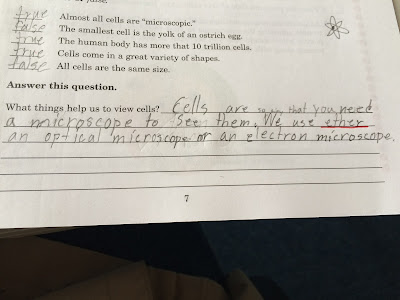 or false.
true Almost all cells are "microscopic."
false The smallest cell is the yolk of an ostrich egg.
true The human body has more that 10 trillion cells.
true Cells come in a great variety of shapes.
false All cells are the same size.
Answer this question.
What things help us to view cells? Cells are that you need
a microscope to see them. We use ether
an optical microscope or an electron microscope.
7